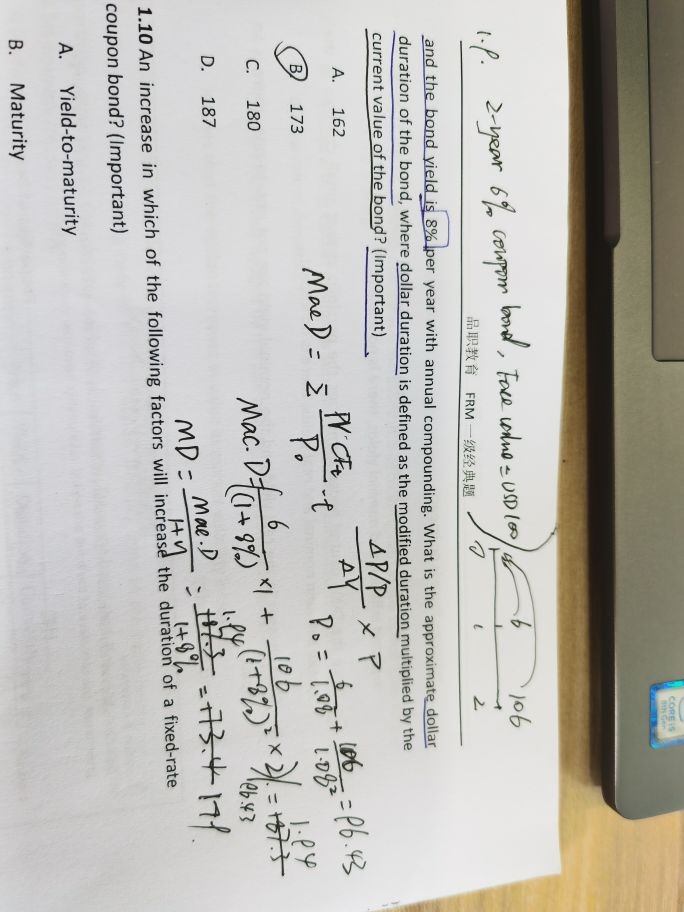 1.9. 2-year 6% coupon bond, Face value = USD 100
0 1 2
6 106
品职教育 FRM 一级经典题
and the bond yield is 8% per year with annual compounding. What is the approximate dollar
duration of the bond, where dollar duration is defined as the modified duration multiplied by the
current value of the bond? (Important)
ΔP/P / ΔY × P
A. 162
B. 173
C. 180
D. 187
Mac D = Σ PV·CFt / P0 · t
P0 = 6/1.08 + 106/1.08² = 96.43
Mac. D = (6/(1+8%) × 1 + 106/(1+8%)² × 2) / 96.43 = 187.3 1.94
MD = Mac.D / 1+y = 187.3 1.94 / 1+8% = 173.4 1.79.
1.10 An increase in which of the following factors will increase the duration of a fixed-rate
coupon bond? (Important)
A. Yield-to-maturity
B. Maturity
CORE i5
8th Gen